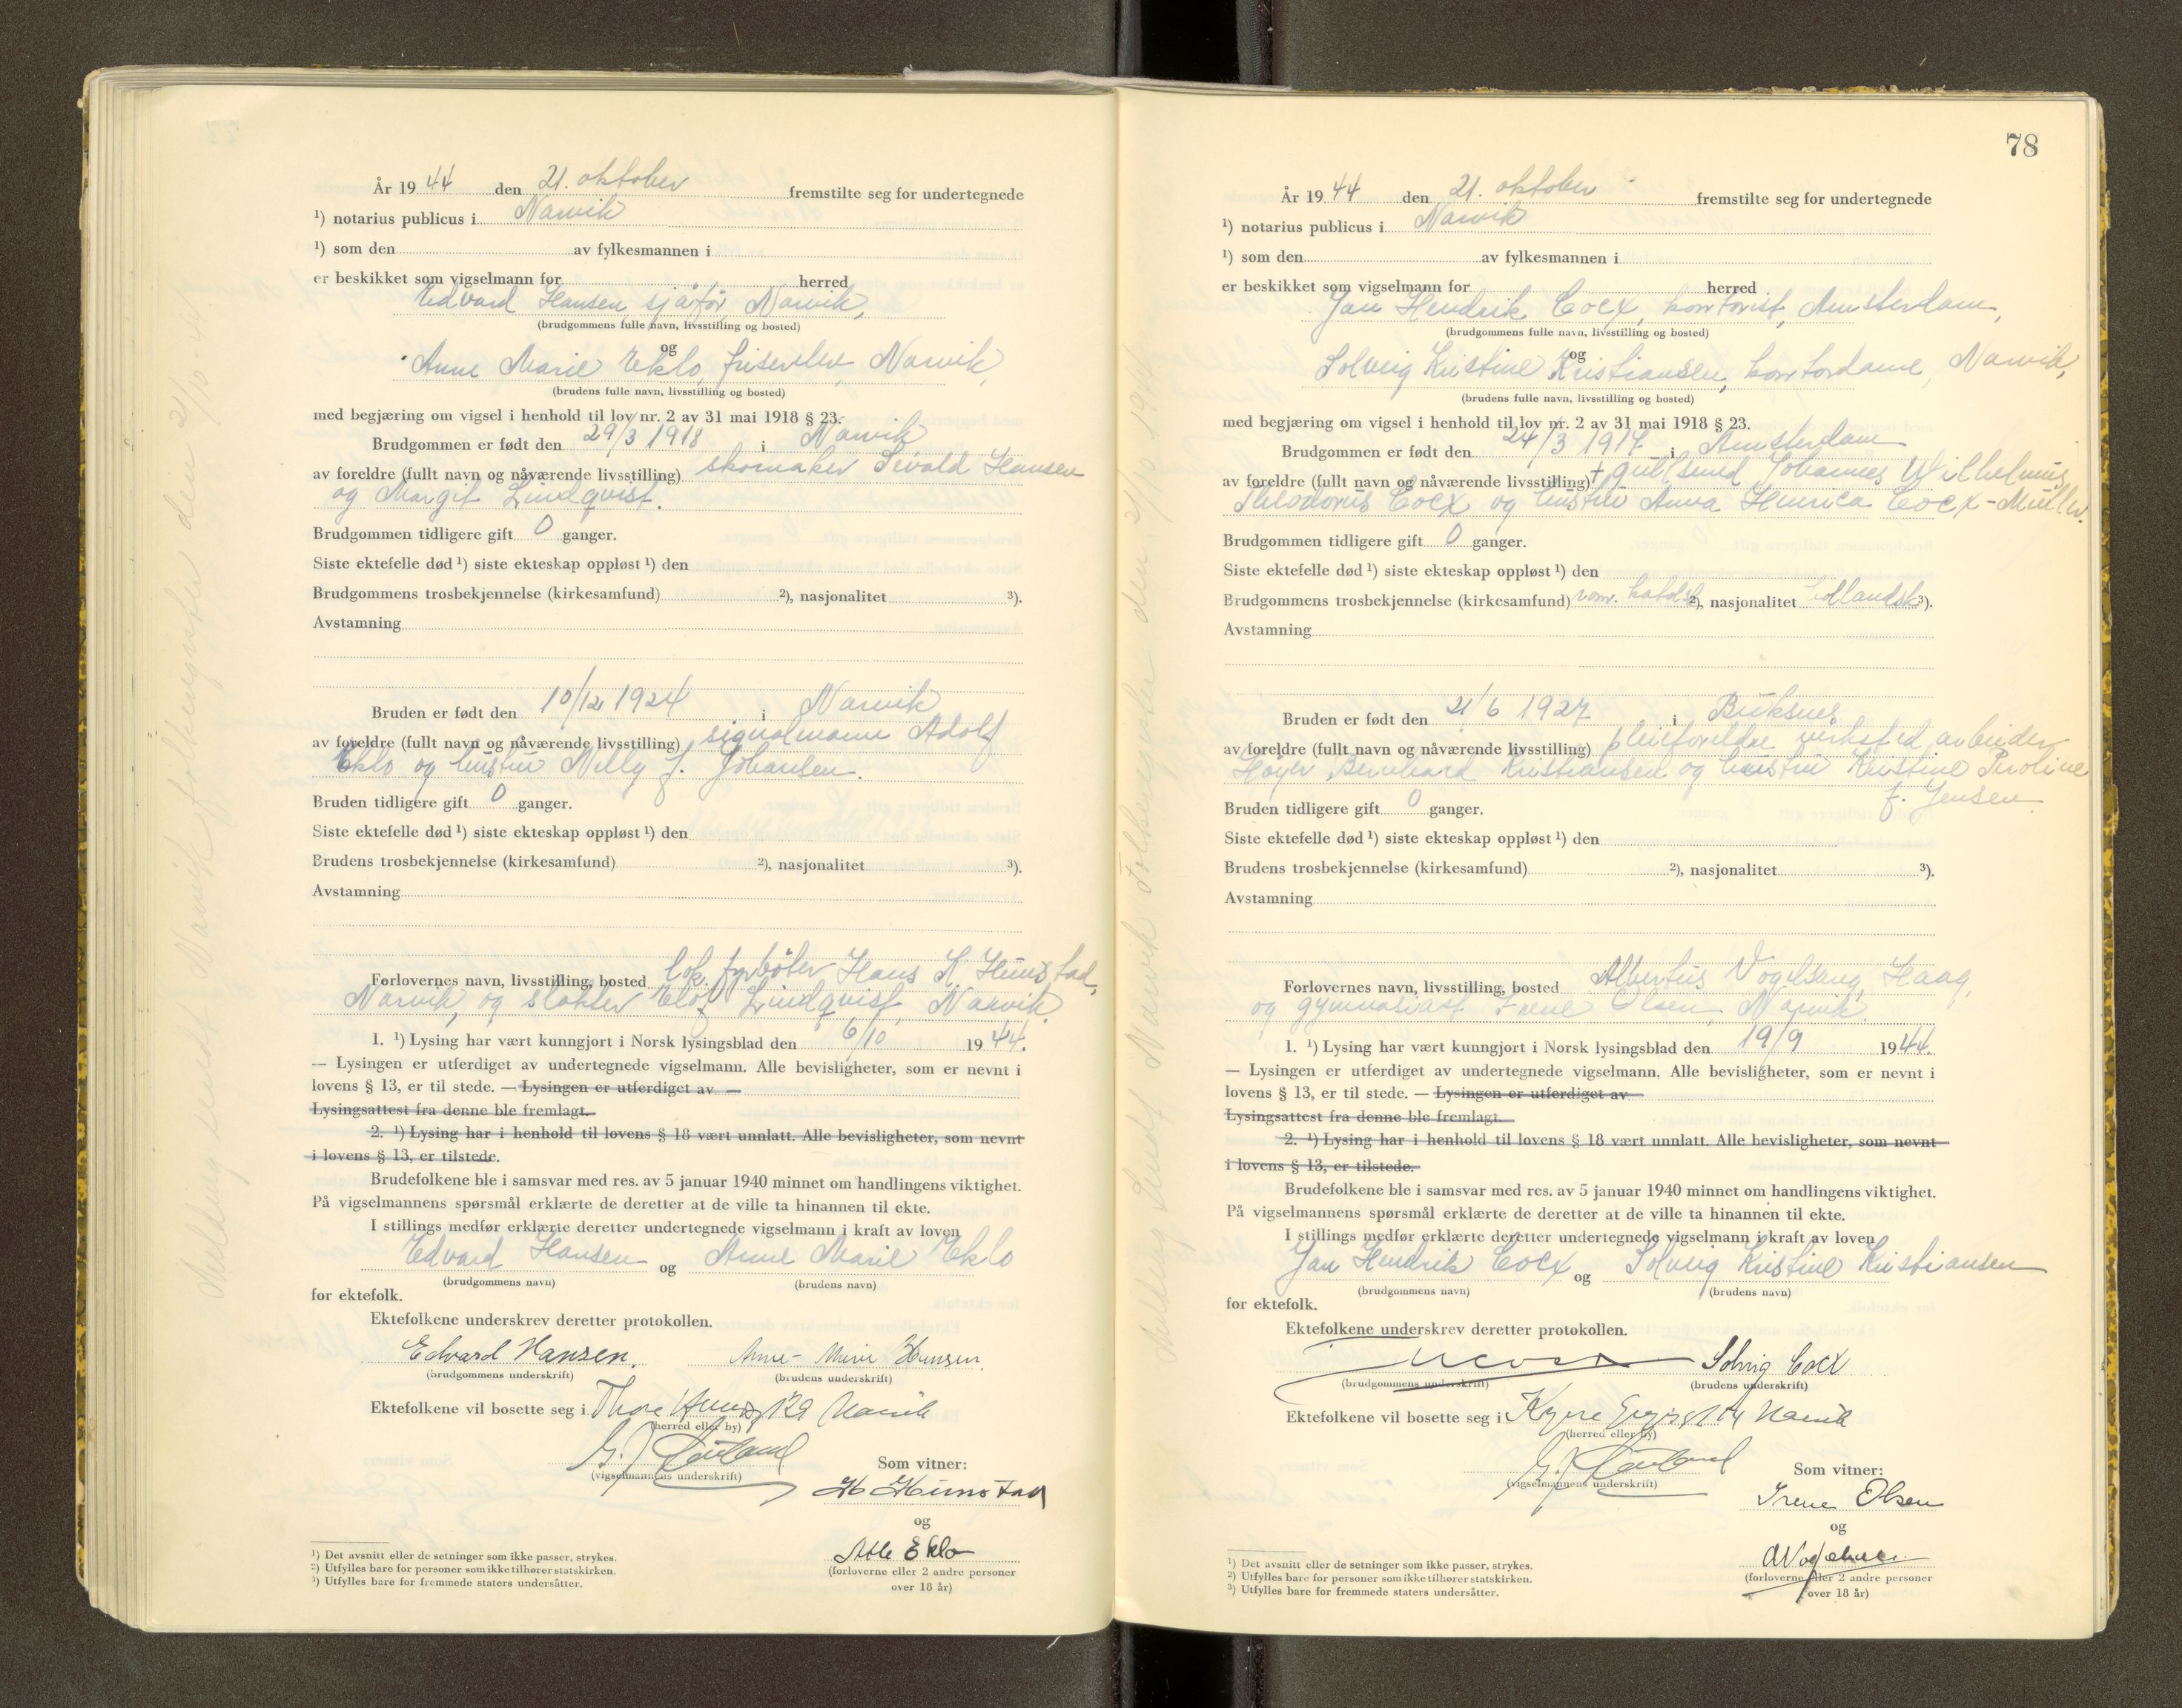 År 19 44 den 21. oktober fremstilte seg for undertegnede
¹) notarius publicus i Narvik
¹) som den av fylkesmannen i
er beskikket som vigselmann for herred
Edvard Hansen, sjåfør, Narvik,
(brudgommens fulle navn, livsstilling og bosted)
og
Anne Marie Eklo, friserelev, Narvik,
(brudens fulle navn, livsstilling og bosted)
med begjæring om vigsel i henhold til lov nr. 2 av 31 mai 1918 § 23.
Brudgommen er født den 29/3 1918 i Narvik
av foreldre (fullt navn og nåværende livsstilling) skomaker Sevald Hansen
og Margit Lindqvist.
Brudgommen tidligere gift 0 ganger.
Siste ektefelle død ¹) siste ekteskap oppløst ¹) den
Brudgommens trosbekjennelse (kirkesamfund) ²), nasjonalitet ³).
Avstamning
Bruden er født den 10/12 1924 i Narvik
av foreldre (fullt navn og nåværende livsstilling) signalmann Adolf
Eklo og hustru Nelly f. Johansen.
Bruden tidligere gift 0 ganger.
Siste ektefelle død ¹) siste ekteskap oppløst ¹) den
Brudens trosbekjennelse (kirkesamfund) ²), nasjonalitet ³).
Avstamning
Forlovernes navn, livsstilling, bosted lok.fyrbøter Hans K. Hunstad,
Narvik, og slakter Elof Lindqvist, Narvik.
1. ¹) Lysing har vært kunngjort i Norsk lysingsblad den 6/10 19 44.
— Lysingen er utferdiget av undertegnede vigselmann. Alle bevisligheter, som er nevnt i
lovens § 13, er til stede. — Lysingen er utferdiget av —
Lysingsattest fra denne ble fremlagt.
2. ¹) Lysing har i henhold til lovens § 18 vært unnlatt. Alle bevisligheter, som nevnt
i lovens § 13, er tilstede.
Brudefolkene ble i samsvar med res. av 5 januar 1940 minnet om handlingens viktighet.
På vigselmannens spørsmål erklærte de deretter at de ville ta hinannen til ekte.
I stillings medfør erklærte deretter undertegnede vigselmann i kraft av loven
Edvard Hansen og Anne Marie Eklo
(brudgommens navn) (brudens navn)
for ektefolk.
Ektefolkene underskrev deretter protokollen.
Edvard Hansen. Anne-Marie Hansen.
(brudgommens underskrift) (brudens underskrift)
Ektefolkene vil bosette seg i Thore 129 Narvik
(herred eller by)
(vigselmannens underskrift) Som vitner:
H Hunstad
og
Atle Eklo
(forloverne eller 2 andre personer
over 18 år)
¹) Det avsnitt eller de setninger som ikke passer, strykes.
²) Utfylles bare for personer som ikke tilhører statskirken.
³) Utfylles bare for fremmede staters undersåtter.
Melding sendt Narvik folkeregister den 21/10
78
År 19 44 den 21. oktober fremstilte seg for undertegnede
¹) notarius publicus i Narvik
¹) som den av fylkesmannen i
er beskikket som vigselmann for herred
Jan Hendrik Cocx, kontorist, Amsterdam,
(brudgommens fulle navn, livsstilling og bosted)
og
Solveig Kristine Kristiansen, kontordame, Narvik,
(brudens fulle navn, livsstilling og bosted)
med begjæring om vigsel i henhold til lov nr. 2 av 31 mai 1918 § 23.
Brudgommen er født den 24/3 1917 i Amsterdam
av foreldre (fullt navn og nåværende livsstilling) + gullsmed Johannes Wilhelmus
Theodorus Cocx og hustru Anna Henrica Cocx-Muller.
Brudgommen tidligere gift 0 ganger.
Siste ektefelle død ¹) siste ekteskap oppløst ¹) den
Brudgommens trosbekjennelse (kirkesamfund) rom. katolsk ²), nasjonalitet hollandsk ³).
Avstamning
Bruden er født den 21/6 1927 i Buksnes
av foreldre (fullt navn og nåværende livsstilling) pleieforeldre verksted.arbeider
Høyer Bernhard Kristiansen og hustru Kristine Peroline
f. Jensen
Bruden tidligere gift 0 ganger.
Siste ektefelle død ¹) siste ekteskap oppløst ¹) den
Brudens trosbekjennelse (kirkesamfund) ²), nasjonalitet ³).
Avstamning
Forlovernes navn, livsstilling, bosted Albertus Vogelsang, Haag,
og gymnasiast Irene Olsen, Narvik.
1. ¹) Lysing har vært kunngjort i Norsk lysingsblad den 19/9 19 44.
— Lysingen er utferdiget av undertegnede vigselmann. Alle bevisligheter, som er nevnt i
lovens § 13, er til stede. — Lysingen er utferdiget av
Lysingsattest fra denne ble fremlagt.
2. ¹) Lysing har i henhold til lovens § 18 vært unnlatt. Alle bevisligheter, som nevnt
i lovens § 13, er tilstede.
Brudefolkene ble i samsvar med res. av 5 januar 1940 minnet om handlingens viktighet.
På vigselmannens spørsmål erklærte de deretter at de ville ta hinannen til ekte.
I stillings medfør erklærte deretter undertegnede vigselmann i kraft av loven
Jan Hendrik Cocx og Solveig Kristine Kristiansen
(brudgommens navn) (brudens navn)
for ektefolk.
Ektefolkene underskrev deretter protokollen.
Solveig Cocx
(brudgommens underskrift) (brudens underskrift)
Ektefolkene vil bosette seg i Narvik
(herred eller by)
(vigselmannens underskrift) Som vitner:
Irene Olsen
og
(forloverne eller 2 andre personer
over 18 år)
¹) Det avsnitt eller de setninger som ikke passer, strykes.
²) Utfylles bare for personer som ikke tilhører statskirken.
³) Utfylles bare for fremmede staters undersåtter.
Melding sendt Narvik Folkeregister den 21/10 19